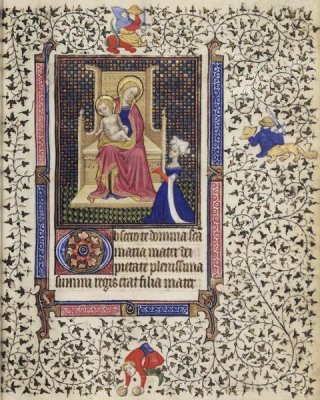 Obsecro te domina sca
maria mater di
pietate plenissima
summi regis filia mater